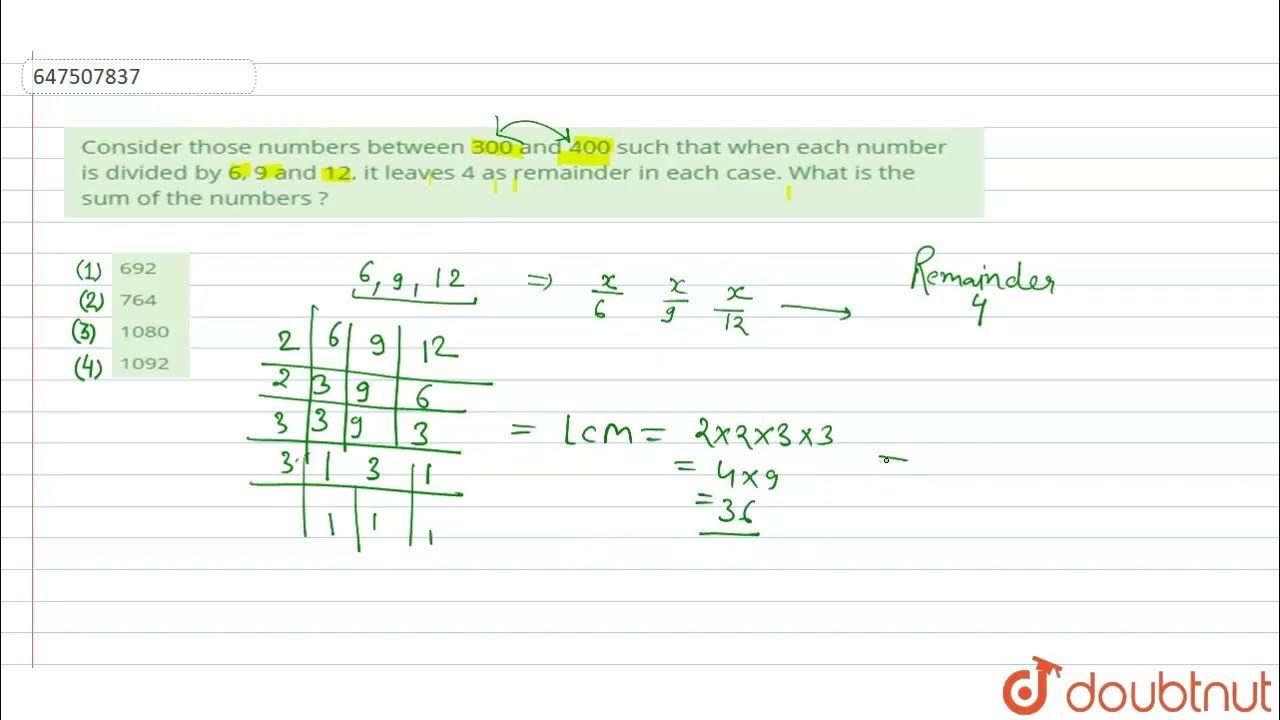 647507837
Consider those numbers between 300 and 400 such that when each number
is divided by 6, 9 and 12, it leaves 4 as remainder in each case. What is the
sum of the numbers ?
(1) 692
(2) 764
(3) 1080
(4) 1092
6, 9, 12 ⇒ x/6 x/9 x/12 → Remainder 4
2 | 6 | 9 | 12
2 | 3 | 9 | 6
3 | 3 | 9 | 3
3 | 1 | 3 | 1
1 | 1 | 1
= LCM = 2×2×3×3
= 4×9
= 36
doubtnut